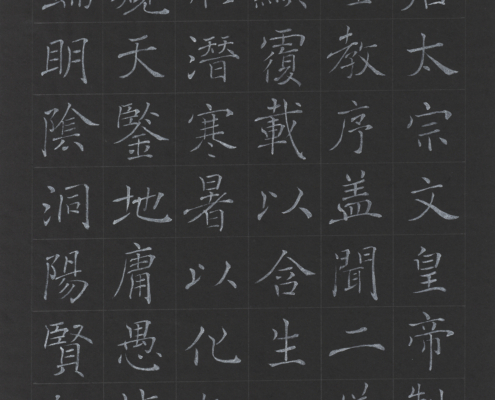 太宗文皇帝
教序盖聞二
覆載以含生
潛寒暑以化
天鑒地庸愚
眀陰洞陽賢